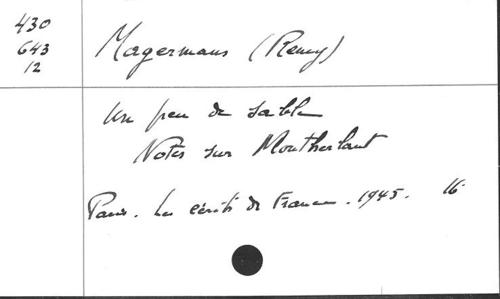 430
643
12
Magermans (Remy)
Un peu de sable
Notes sur Montherlant
Paris. Les écrits de France. 1945. 16°